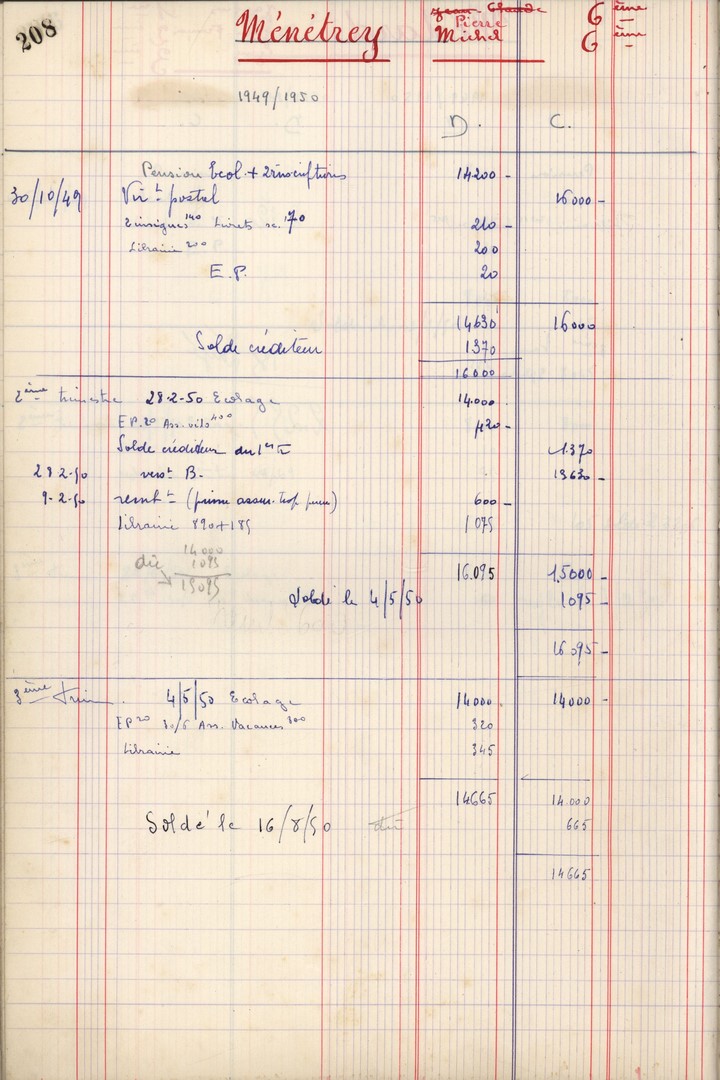 208
Ménétrey Jean-Claude 6 ème
Pierre
Michel 6 ème
1949/1950
D. C.
Pension Ecol. + 2 inscriptions 14200 -
30/10/49 Virt postal 16000 -
2 insignes 140 Livrets sc. 70 210 -
Librairie 200 200
E.P. 20
14630 16000
Solde créditeur 1370
16000
2ème trimestre 28-2-50 Ecolage 14.000
EP. 20 Ass. vélo 400 420 -
Solde créditeur du 1er tr 1.370
28 2-50 verst B. 13630 -
9-2-50 rembt (prime assur. trop perçu) 600 -
Librairie 890+185 1075
dû 14000
1095
15095
16.095 15000 -
Soldé le 4/5/50 1095 -
16 095 -
3ème Trim. 4/5/50 Ecolage 14000 14000 -
EP 20 Ass. Vacances 300 320
Librairie 345
14665 14.000
Soldé le 16/8/50 dû 665
14665